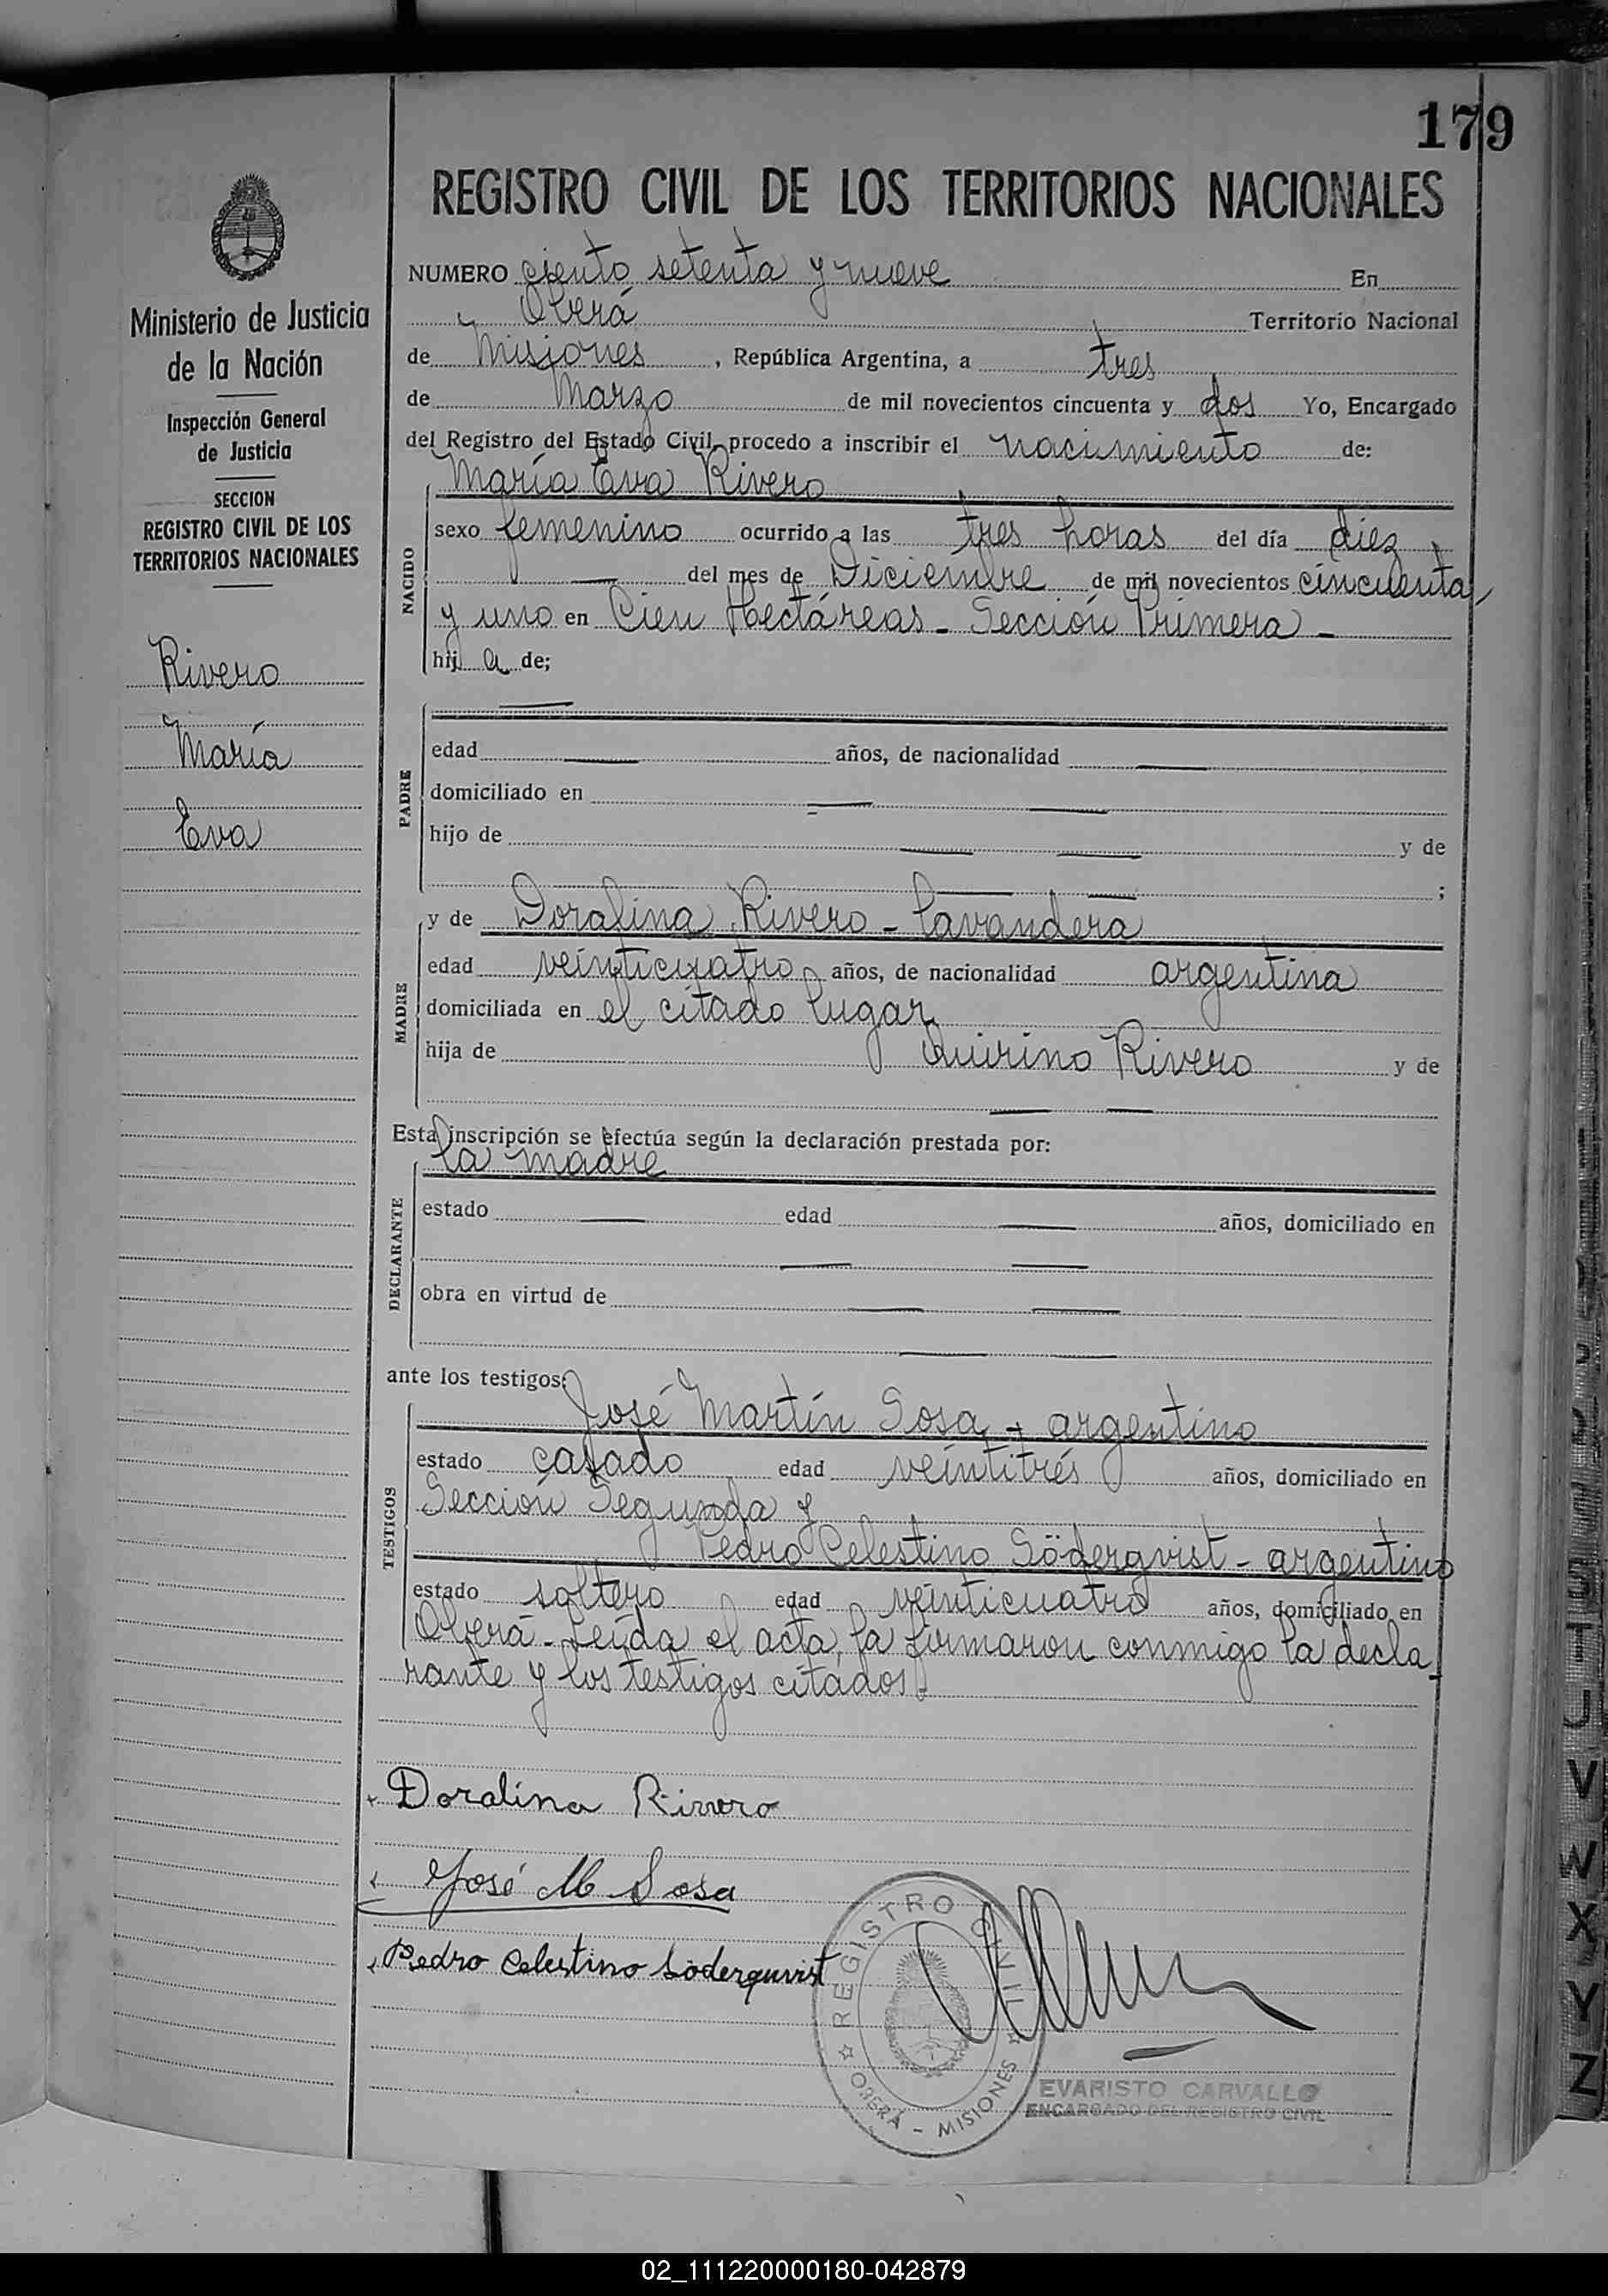 179
REGISTRO CIVIL DE LOS TERRITORIOS NACIONALES
Ministerio de Justicia
de la Nación
Inspección General
de Justicia
SECCION
REGISTRO CIVIL DE LOS
TERRITORIOS NACIONALES
Rivero
María
Eva
NUMERO ciento setenta y nueve En
Oberá Territorio Nacional
de Misiones, República Argentina, a tres
de Marzo de mil novecientos cincuenta y dos Yo, Encargado
del Registro del Estado Civil, procedo a inscribir el nacimiento de:
NACIDO
María Eva Rivero
sexo femenino ocurrido a las tres horas del día diez
del mes de Diciembre de mil novecientos cincuenta
y uno en Cien Hectáreas - Sección Primera -
hij a de;
PADRE
edad años, de nacionalidad
domiciliado en
hijo de y de
;
MADRE
y de Doralina Rivero - lavandera
edad veinticuatro años, de nacionalidad argentina
domiciliada en el citado lugar
hija de Quirino Rivero y de
Esta inscripción se efectúa según la declaración prestada por:
DECLARANTE
la madre
estado edad años, domiciliado en
obra en virtud de
ante los testigos:
TESTIGOS
José Martín Sosa - argentino
estado casado edad veintitrés años, domiciliado en
Sección Segunda y
Pedro Celestino Söderqvist - argentino
estado soltero edad veinticuatro años, domiciliado en
Oberá - Leída el acta, la firmaron conmigo la decla-
rante y los testigos citados.
Doralina Rivero
José M Sosa
Pedro Celestino Söderquvist
REGISTRO CIVIL
OBERÁ - MISIONES
EVARISTO CARVALLO
ENCARGADO DEL REGISTRO CIVIL
U
V
W
X
Y
Z
02_111220000180-042879